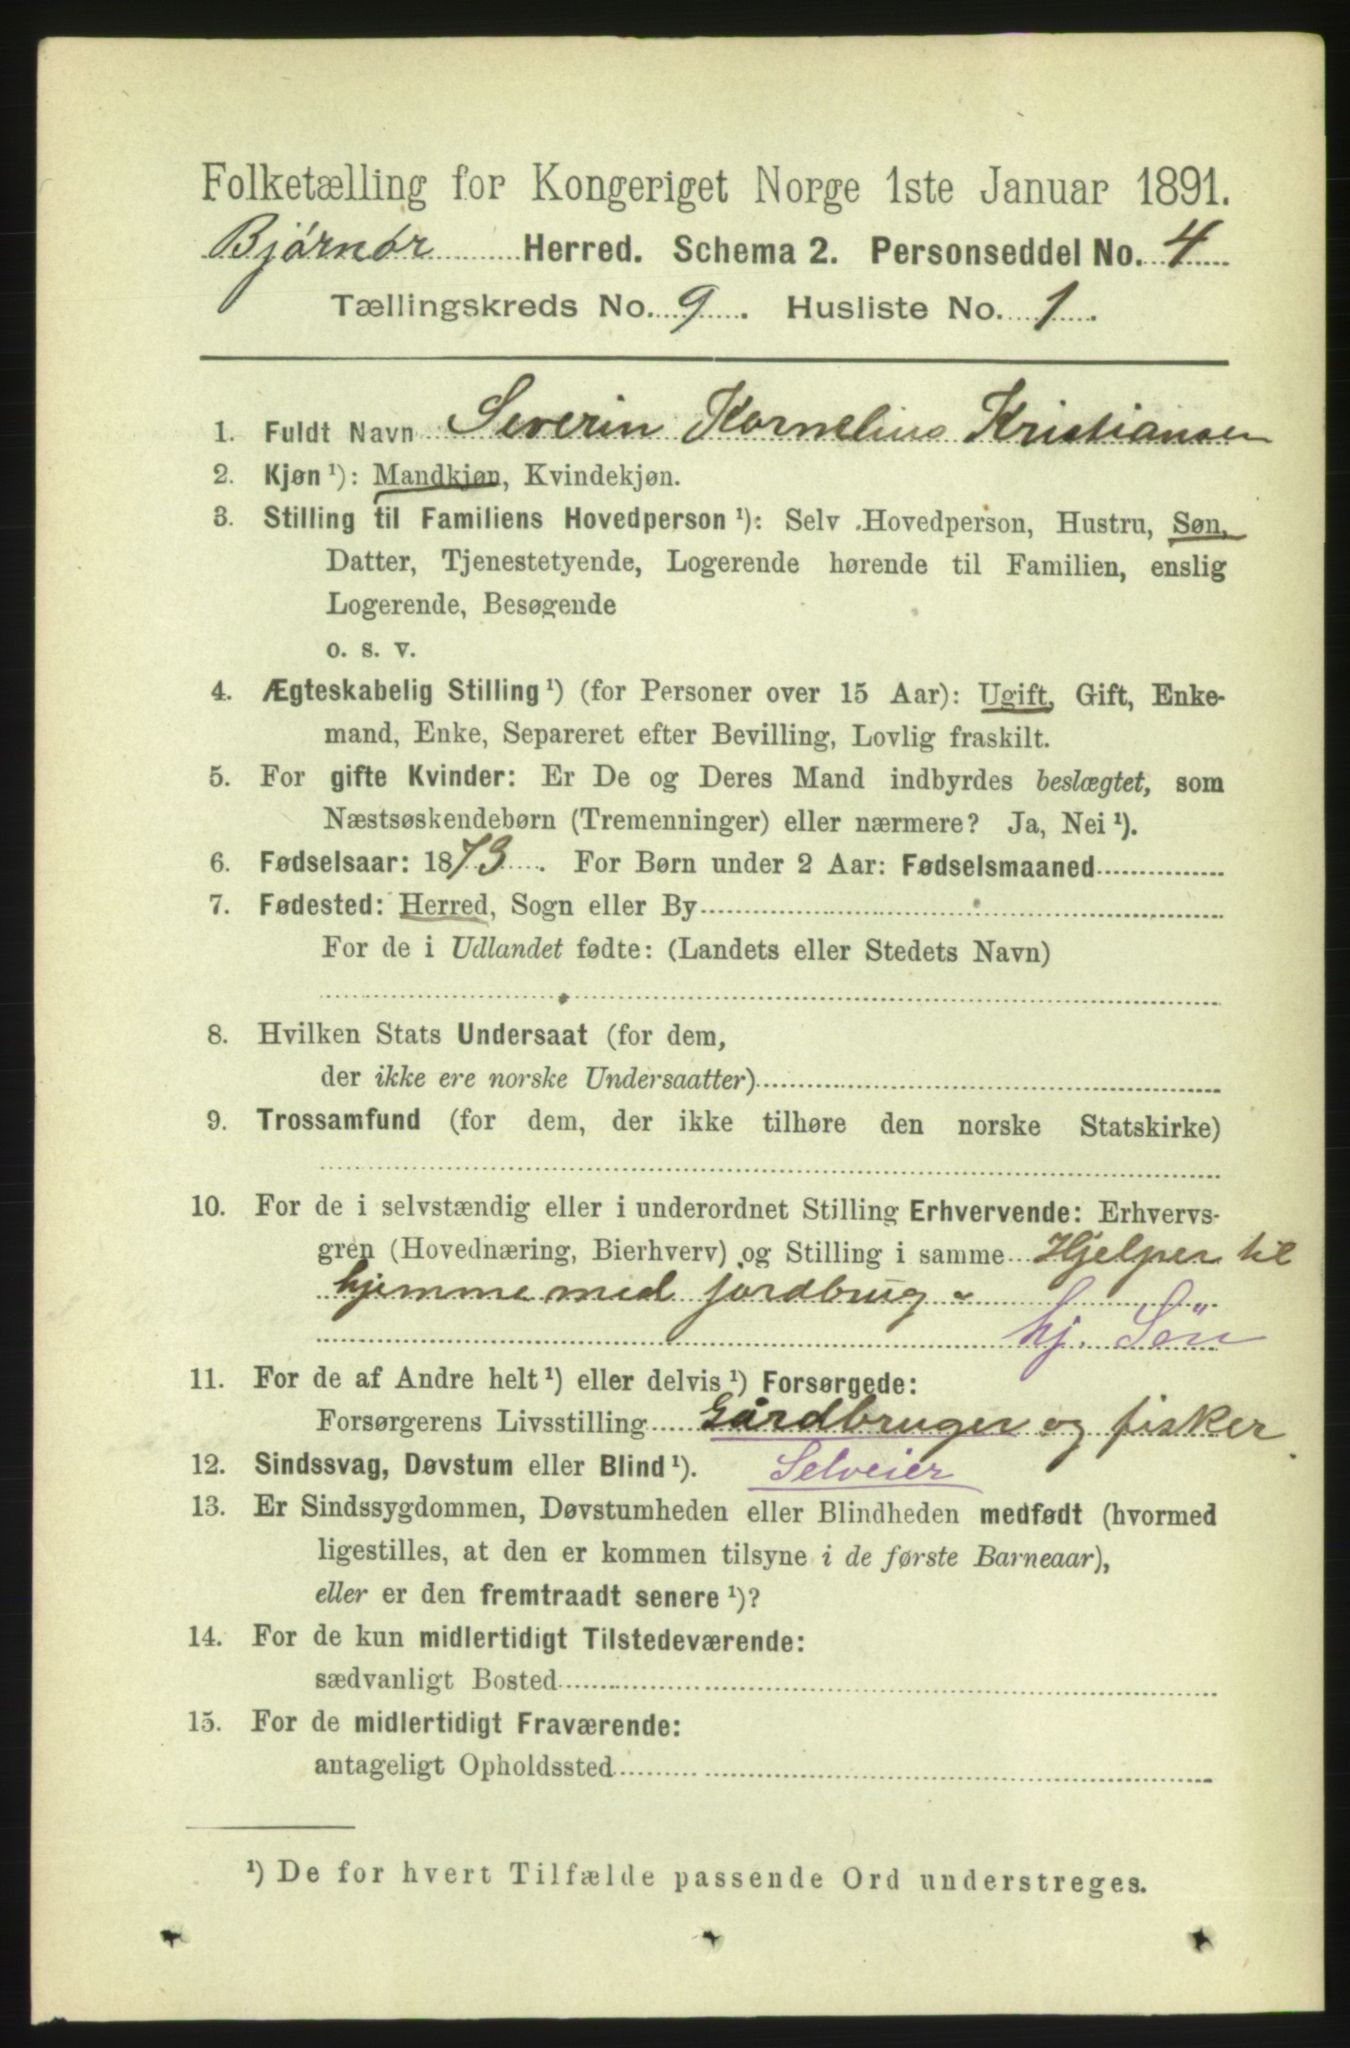 Folketælling for Kongeriget Norge 1ste Januar 1891.
Bjørnør Herred. Schema 2. Personseddel No. 4
Tællingskreds No. 9. Husliste No. 1.
1. Fuldt Navn Severin Kornelius Kristiansen
2. Kjøn ¹): Mandkjøn, Kvindekjøn.
3. Stilling til Familiens Hovedperson ¹): Selv Hovedperson, Hustru, Søn,
Datter, Tjenestetyende, Logerende hørende til Familien, enslig
Logerende, Besøgende
o. s. v.
4. Ægteskabelig Stilling ¹) (for Personer over 15 Aar): Ugift, Gift, Enke-
mand, Enke, Separeret efter Bevilling, Lovlig fraskilt.
5. For gifte Kvinder: Er De og Deres Mand indbyrdes beslægtet, som
Næstsøskendebørn (Tremenninger) eller nærmere? Ja, Nei ¹).
6. Fødselsaar: 1873. For Børn under 2 Aar: Fødselsmaaned
7. Fødested: Herred, Sogn eller By
For de i Udlandet fødte: (Landets eller Stedets Navn)
8. Hvilken Stats Undersaat (for dem,
der ikke ere norske Undersaatter)
9. Trossamfund (for dem, der ikke tilhøre den norske Statskirke)
10. For de i selvstændig eller i underordnet Stilling Erhvervende: Erhvervs-
gren (Hovednæring, Bierhverv) og Stilling i samme Hjelper til
hjemme med jordbrug
hj. Søn
11. For de af Andre helt ¹) eller delvis ¹) Forsørgede:
Forsørgerens Livsstilling Gårdbruger og fisker.
12. Sindssvag, Døvstum eller Blind ¹). Selveier
13. Er Sindssygdommen, Døvstumheden eller Blindheden medfødt (hvormed
ligestilles, at den er kommen tilsyne i de første Barneaar),
eller er den fremtraadt senere ¹)?
14. For de kun midlertidigt Tilstedeværende:
sædvanligt Bosted
15. For de midlertidigt Fraværende:
antageligt Opholdssted
¹) De for hvert Tilfælde passende Ord understreges.